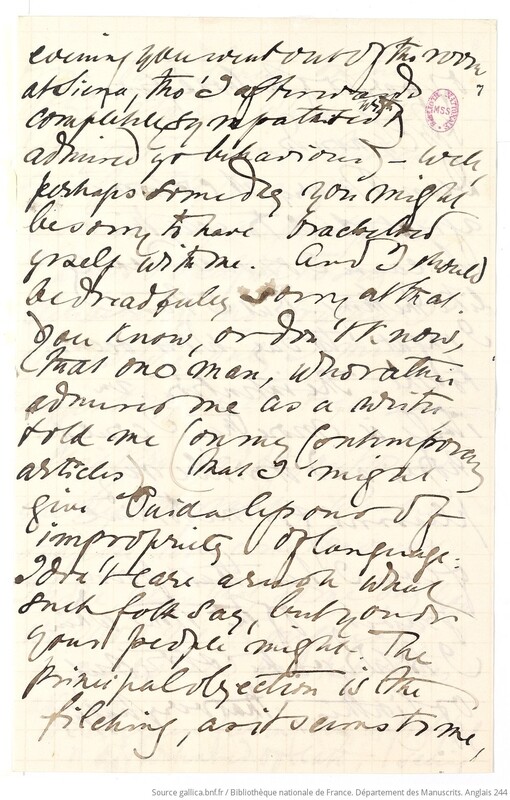 evening you went out of the room
at Siena, tho' I afterwards
completely sympathised with &
admired yr behaviour) – well,
perhaps some day you might
be sorry to have bracketed
yrself with me. And I should
be dreadfully sorry at that.
You know, or don't know,
that one man, who rather
admired me as a writer
told me (on my Contemporary
articles) that I might
give Ouida lessons of
impropriety of language.
I don't care a rush what
such folk say, but you or
your people might. The
principal objection is the
filching, as it seems to me,
BIBLIOTHÈQUE NATIONALE
MSS
Source gallica.bnf.fr / Bibliothèque nationale de France. Département des Manuscrits. Anglais 244